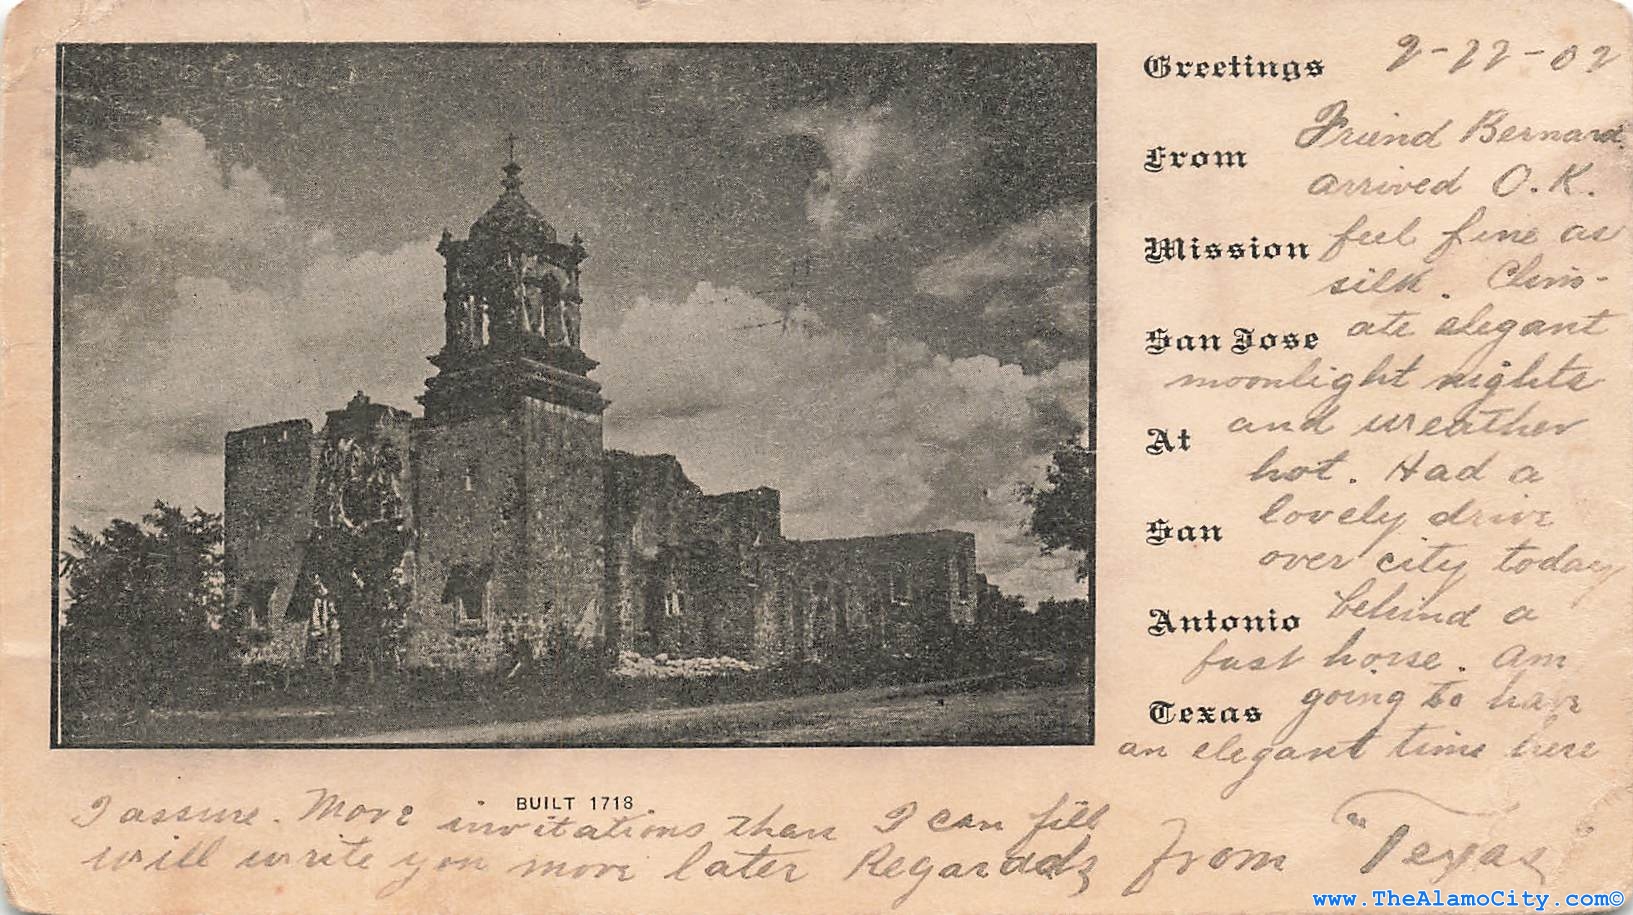 Greetings 9-22-02
Friend Bernard
From
arrived O.K.
Mission feel fine as
silk. Clim-
San Jose ate elegant
moonlight nights
At and weather
hot. Had a
San lovely drive
over city today
Antonio behind a
fast horse. Am
Texas going to have
an elegant time here
BUILT 1718
I assure. More invitations than I can fill
will write you more later Regards from "Texas
www.TheAlamoCity.com©